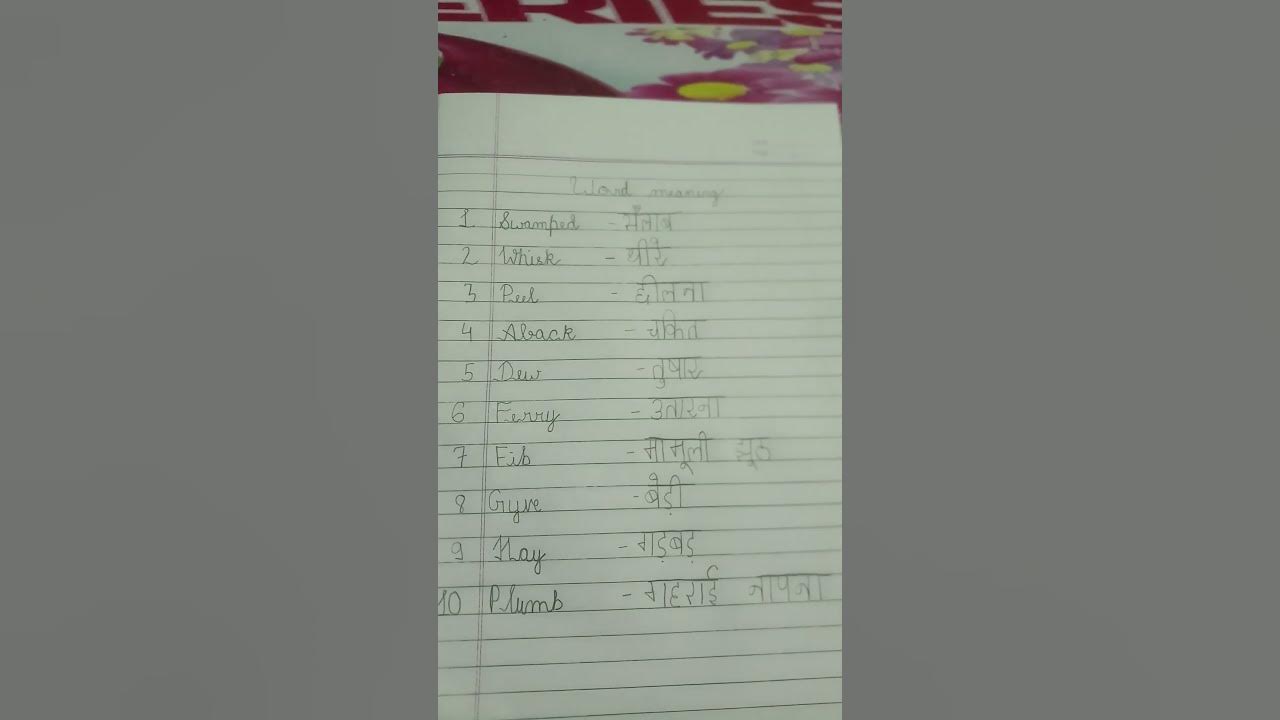 ERIES
Word meaning
1 Swamped - सैलाब
2 Whisk - धीरे
3 Peel - छीलना
4 Aback - चकित
5 Dew - तुषार
6 Ferry - उतारना
7 Fib - मामूली झूठ
8 Gyve - बेड़ी
9 Hay - गड़बड़
10 Plumb - गहराई नापना